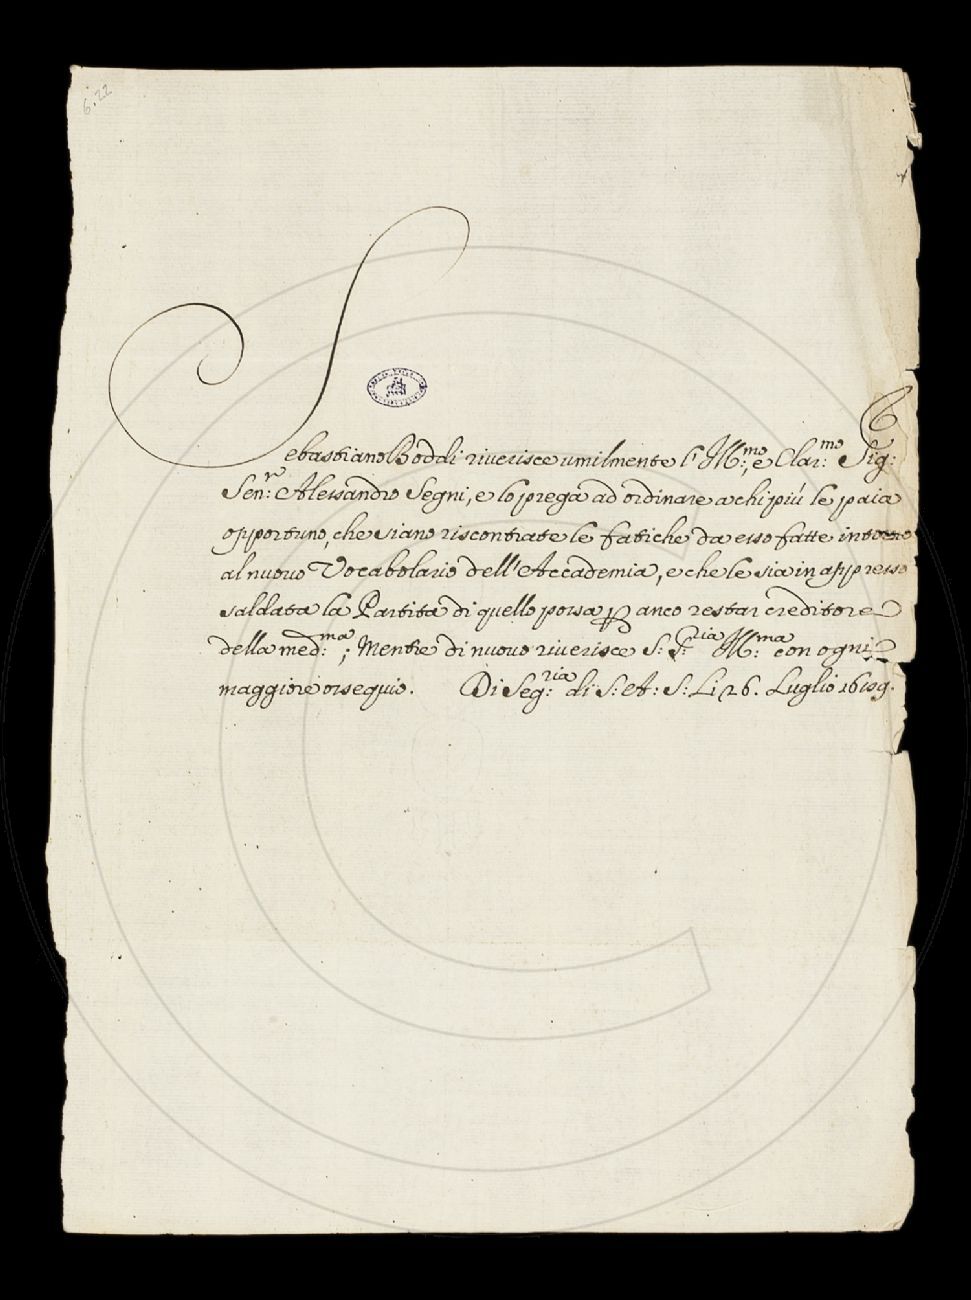 6.22
Sebastiano Boddi riverisce umilmente l' Ill:mo, e Clar:mo Sig:
Sen:r Alessandro Segni, e lo prega ad ordinare a chi più le paia
opportuno, che siano riscontrate le fatiche da esso fatte intorno
al nuovo Vocabolario dell'Accademia, e che le sia in appresso
saldata la Partita di quello possa anco restar creditore
della med:ma; Mentre di nuovo riverisce S: S:ria Ill:ma con ogni
maggiore ossequio. Di Seg:ria di S: A: S: Li 26. Luglio